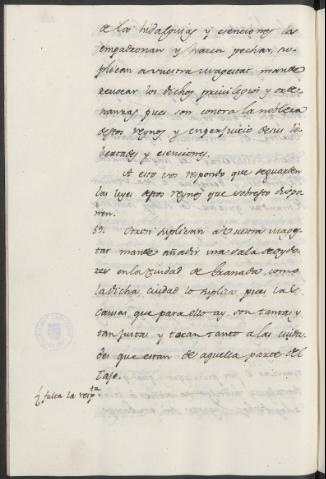 de las hidalguias y esenciones las
empadronan y hacen pechar, su-
plican a vuestra magestad mande
revocar los dichos privilegios y orde-
nanzas pues son contra la nobleza
destos reynos y en perjuicio de sus li-
bertades y esenciones.
A esto vos respondo que se guarden
las leyes destos reynos que sobresto dispo-
nen.
59. Otrosi suplican a vuestra mages-
tad mande añadir una sala de oydo-
res en la ciudad de Granada como
la dicha ciudad lo suplica pues las
causas que para ello ay son tantas y
tan justas y tocan tanto a las ciuda-
des que estan de aquella parte del
Tajo.
falta la resp.ta